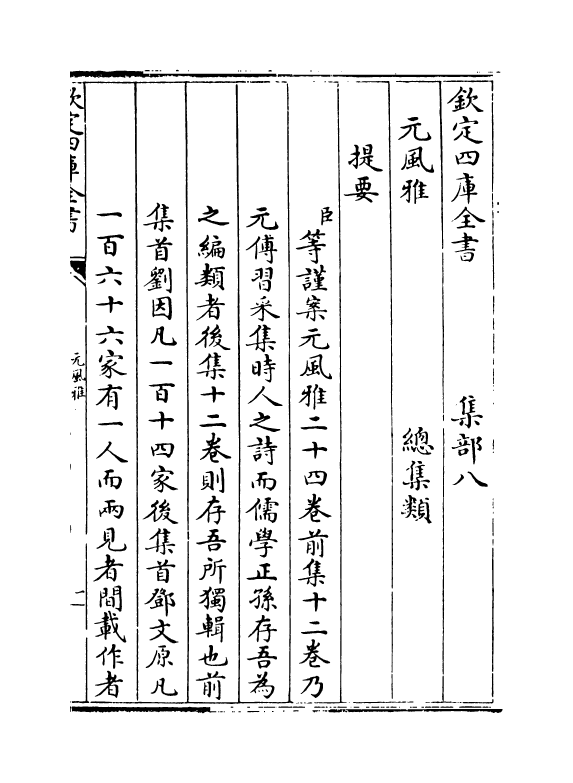 欽定四庫全書 集部八
元風雅 總集類
提要
臣等謹案元風雅二十四卷前集十二卷乃
元傅習采集時人之詩而儒學正孫存吾為
之編類者後集十二卷則存吾所獨輯也前
集首劉因凡一百十四家後集首鄧文原凡
一百六十六家有一人而兩見者間載作者
欽定四庫全書
元風雅